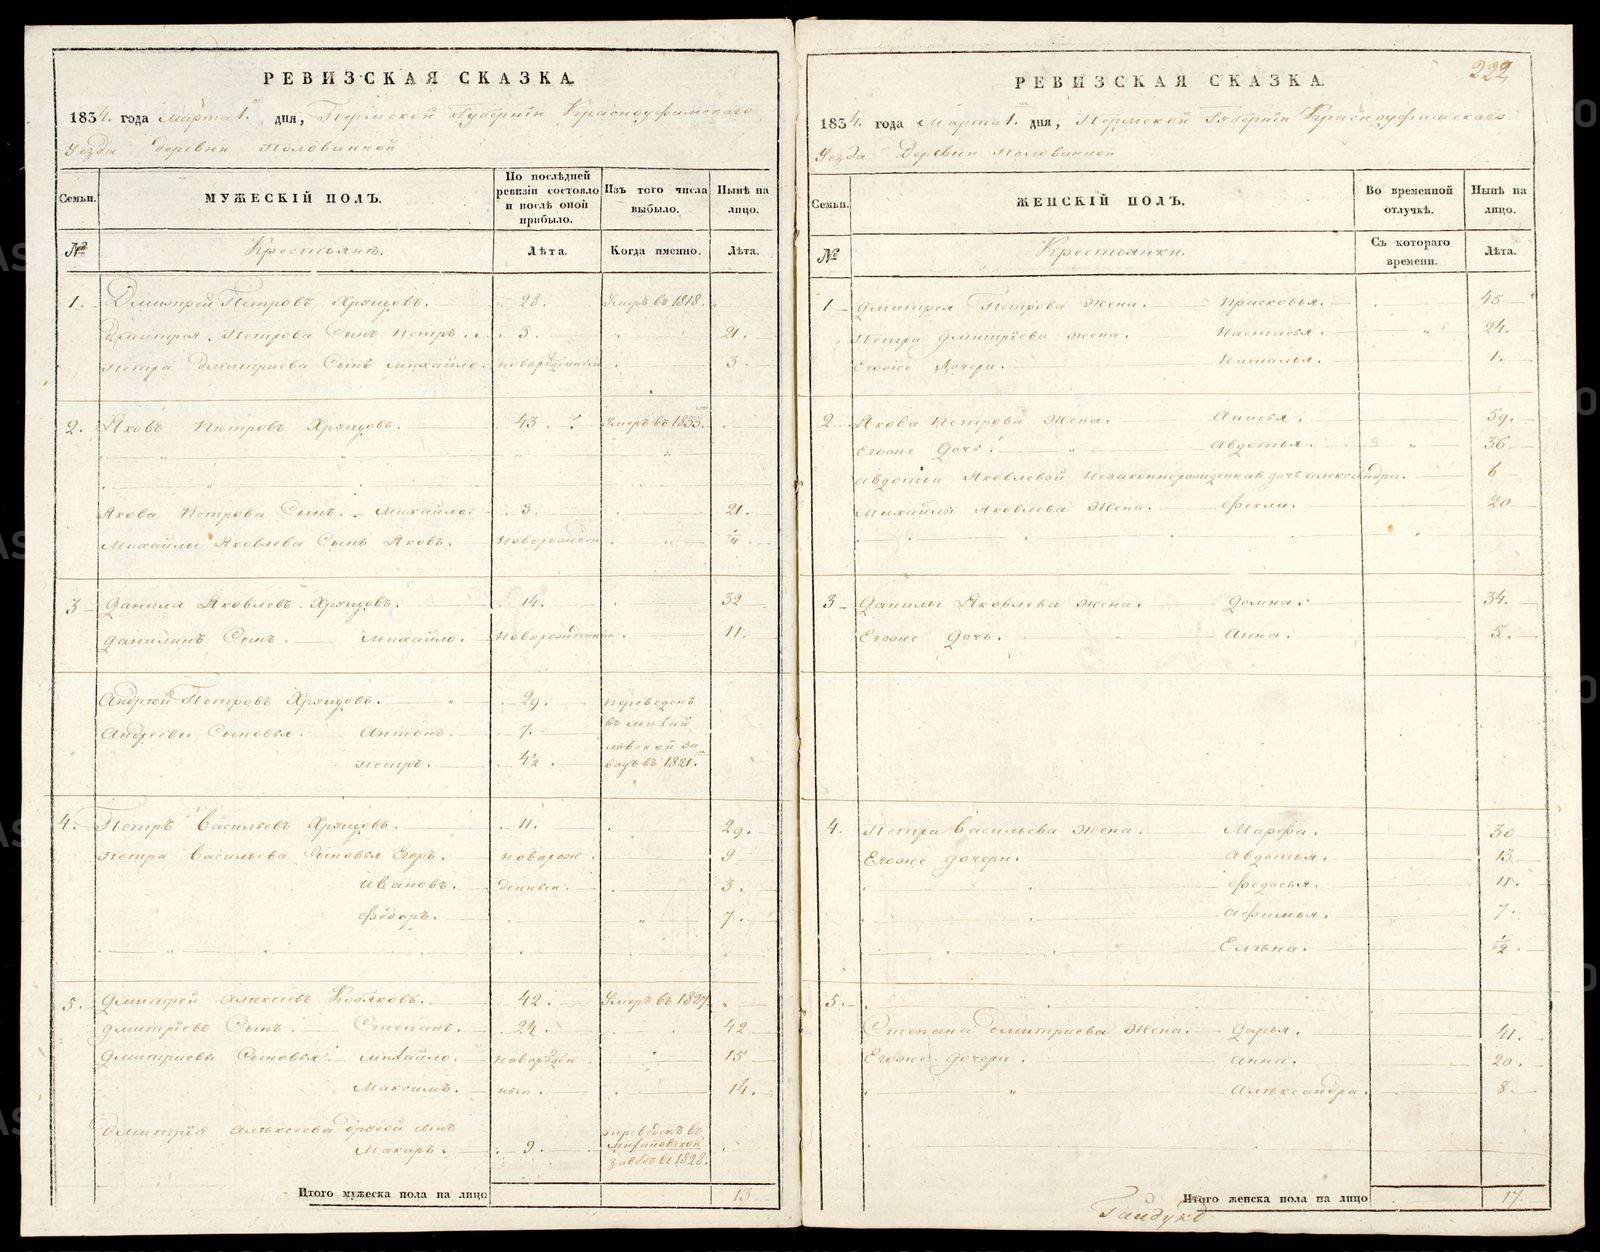 РЕВИЗСКАЯ СКАЗКА.
1834. года Марта 1. дня, Пермской Губернiи Красноуфимского
Уезда деревни Половинной
Семьи.
МУЖЕСКIЙ ПОЛЪ.
По послѣдней ревизiи состояло и послѣ оной прибыло.
Изъ того числа выбыло.
Нынѣ на лицо.
№
Крестьянѣ.
Лѣта.
Когда именно.
Лѣта.
1. Дмитрей Петровъ Хрящовъ. 28. Умеръ въ 1818.
Дмитрея Петрова Сынъ Петръ. 3. 21.
Петра Дмитриева Сынъ Михайло. новорожденный 3.
2. Яковъ Петровъ Хрящовъ. 43. Умеръ въ 1833.
Якова Петрова Сынъ. Михайло. 3. 21.
Михайлы Яковлева Сынъ Яковъ. Новорожден
3 Данила Яковлевъ Хрящовъ. 14. 32
Данилинъ Сынъ. Михайло. Новорожденный. 11.
Андрей Петровъ Хрящовъ. 29. Переведенъ
Андреевы Сыновья. Антонъ. 7. въ михай
Петръ. 4½. ловской за
водъ въ 1821.
4. Петръ Васильевъ Хрящовъ. 11. 29.
Петра Васильева Сыновья Егоръ. новорож 9
Ивановъ. денныи. 3.
Фёдоръ. 7.
5. Дмитрей Алексеевъ Кобяковъ. 42. Умеръ въ 1827.
Дмитрiевъ Сынъ. Степанъ. 24. 42
Дмитриевы Сыновья. михайло. новорожден 15
Максимъ. ныи. 14.
Дмитрiя Алексеева другой сынъ переведенъ въ
Макаръ. 9. Михайловской
заводъ въ 1828.
Итого мужеска пола на лицо 13.
222
РЕВИЗСКАЯ СКАЗКА.
1834. года Марта 1. дня, Пермской Губернiи Красноуфимскаго
Уезда Деревни Половинной
Семьи.
ЖЕНСКIЙ ПОЛЪ.
Во временной отлучкѣ.
Нынѣ на лицо.
№
Крестьянки.
Съ котораго времени.
Лѣта.
1 Дмитрея Петрова жена. Прасковья. 45
Петра Дмитрiева жена. Настасья. 24.
Егоже Дочери. Наталья. 1.
2 Якова Петрова Жена. Анисья. 59.
Егоже Дочь. Авдотья. 36
Авдотьи Яковлевой Незаконнорожденная дочь Александра. 6
Михайлы Яковлева Жена. Фекла. 20
3 Данилы Яковлева жена. Домна. 34.
Егоже Дочь. Анна. 5.
4. Петра Васильева жена. Марфа. 30
Егоже дочери. Авдотья. 13.
Федосья. 11.
Афимья. 7.
Елѣна. ½.
5.
Степана Дмитриева Жена. Дарья. 41.
Егоже дочери. Анна. 20.
Алѣксандра. 8.
Итого женска пола на лицо 17.